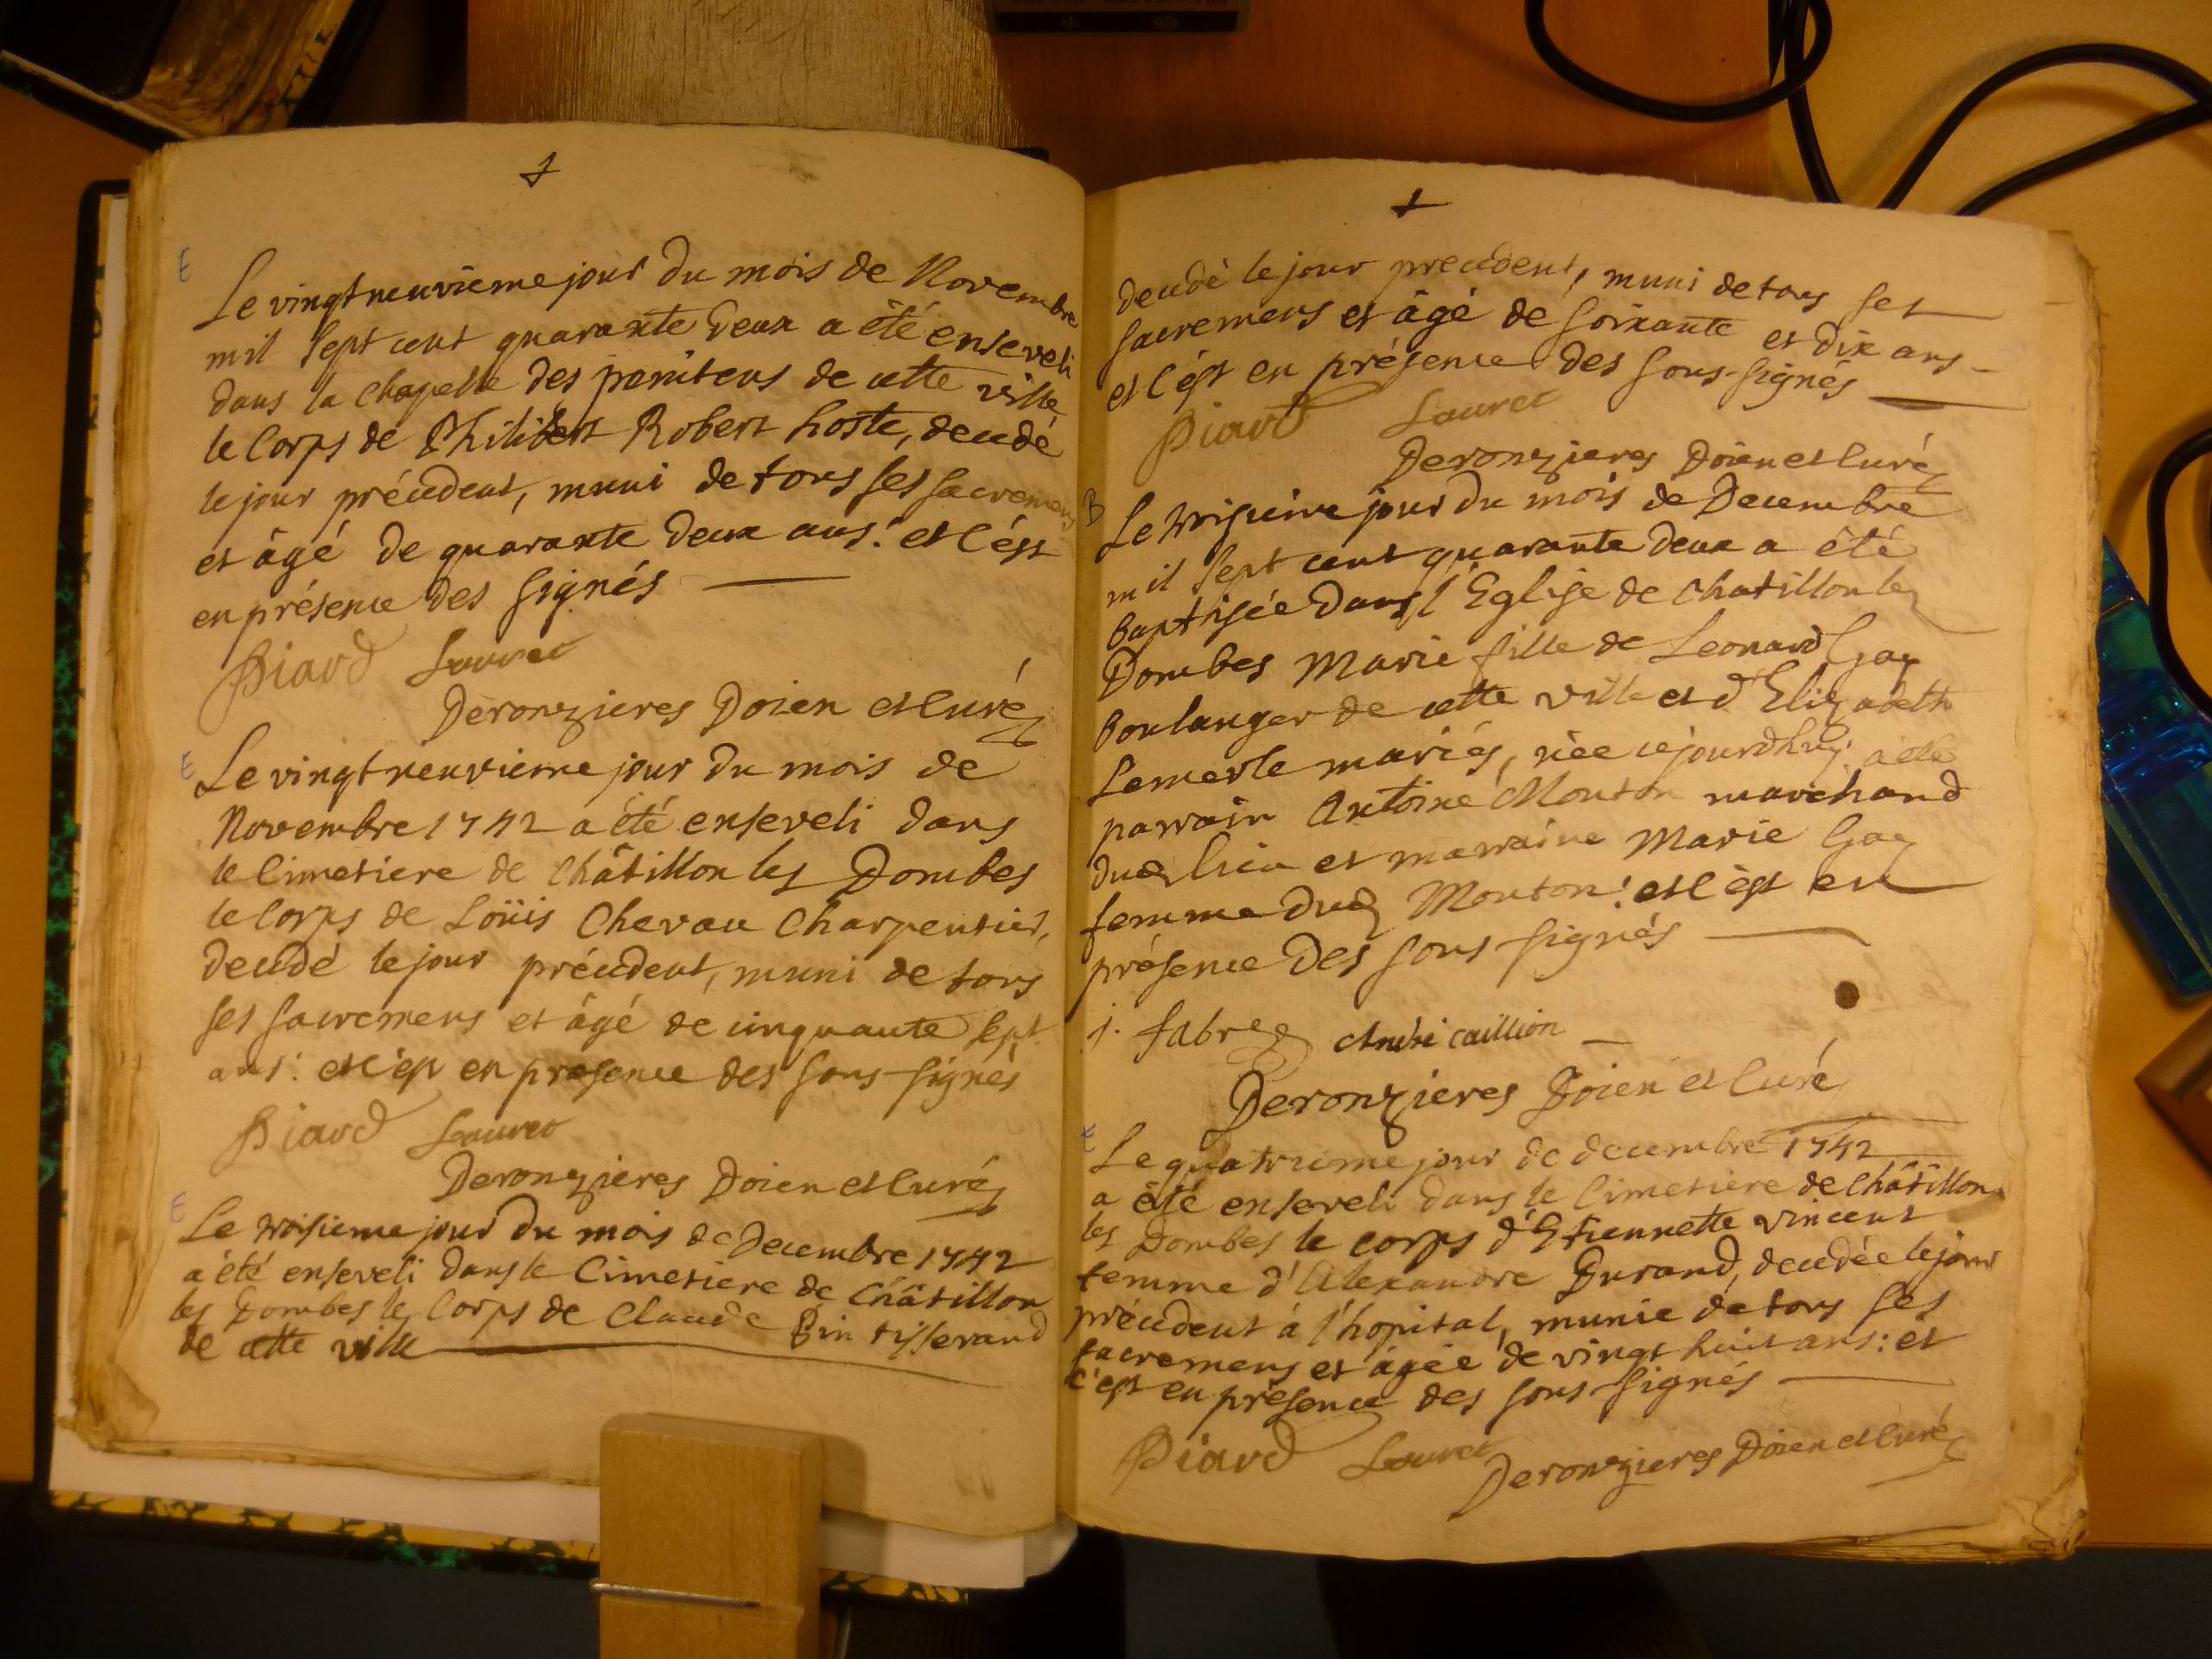 E
Le vingt neuvieme jour du mois de Novembre
mil sept cent quarante deux a été enseveli
dans la chapelle des penitens de cette ville
le Corps de Philibert Robert hoste, decedé
le jour précedent, muni de tous ses sacremens
et âgé de quarante deux ans: et c'ést
en présence des signés
Piard Lauret
Deronzieres Doien et Curé
E
Le vingt neuvieme jour du mois de
Novembre 1742 a été enseveli dans
le Cimetiere de Châtillon les Dombes
le Corps de Loüis Chevau Charpentier,
decedé le jour précedent, muni de tous
ses sacremens et âgé de cinquante sept
ans: et c'ést en présence des sous-signés
Piard Lauret
Deronzieres Doien et Curé
E
Le troisieme jour du mois de Decembre 1742
a été enseveli dans le Cimetiere de Châtillon
les Dombes le Corps de Claude Pin tisserand
de cette ville
decedé le jour precedent, muni de tous ses
sacremens et âgé de soixante et dix ans
et c'ést en présence des sous-signés
Piard Lauret
Deronzieres Doien et Curé
B
Le troisieme jour du mois de Decembre
mil sept cent quarante deux a été
baptisée dans l'Eglise de Chatillon les
Dombes Marie fille de Leonard Gay
boulanger de cette ville et d'Elizabeth
Lemerle mariés, née ce jourdhuy: a été
parrain Antoine Mouton marchand
dud lieu et marraine Marie Gay
femme dud Mouton: et c'èst en
présence des sous-signés
j. fabre André caillion
Deronzieres Doien et Curé
E
Le quatrieme jour de decembre 1742
a été enseveli dans le Cimetiere de Châtillon
les Dombes le corps d'Etiennette vincent
femme d'Alexandre Durand, decedée le jour
précedent à l'hopital, munie de tous ses
sacremens et âgée de vingt huit ans: et
c'est en présence des sous-signés
Piard Lauret
Deronzieres Doien et Curé